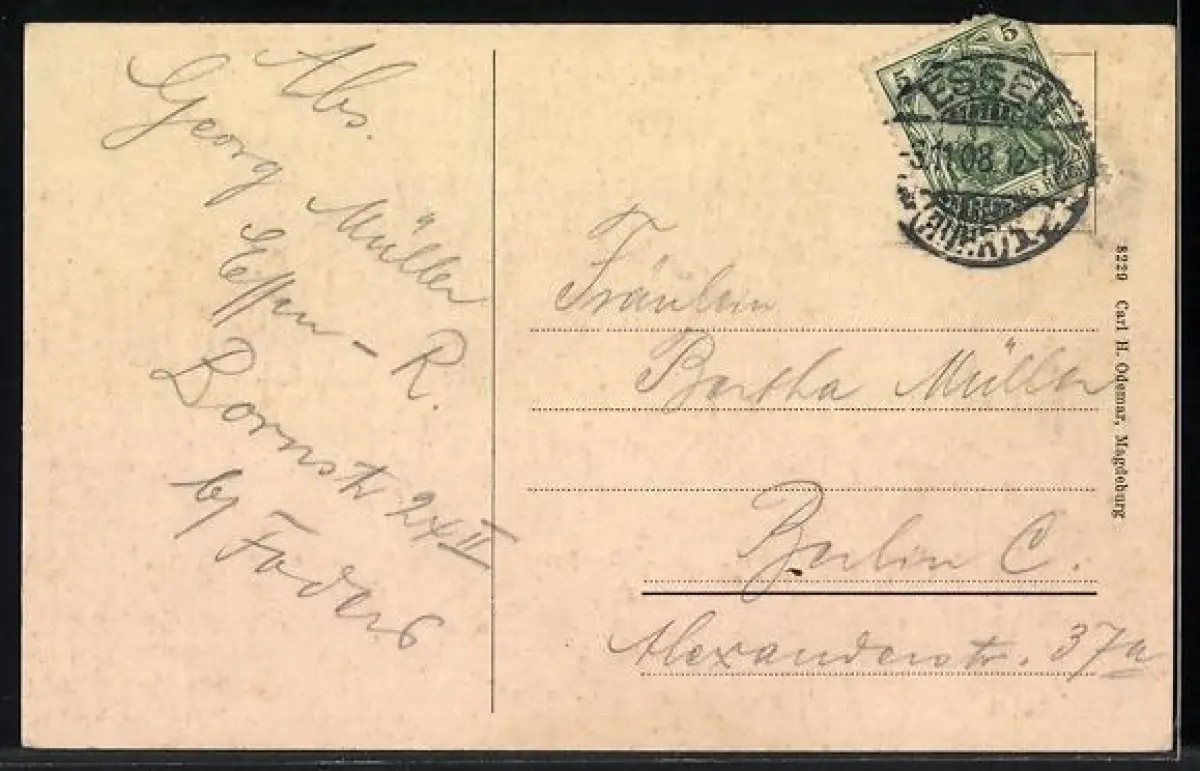 Abs.
Georg Müller
Essen - R.
Bornstr. 24 II
b/ Faders
5
5
ESSEN
3.11.08. 12-1
(RUHR) 1
Fräulein
Bertha Müller
Berlin C.
Alexanderstr. 37a
8229 Carl H. Odemar, Magdeburg